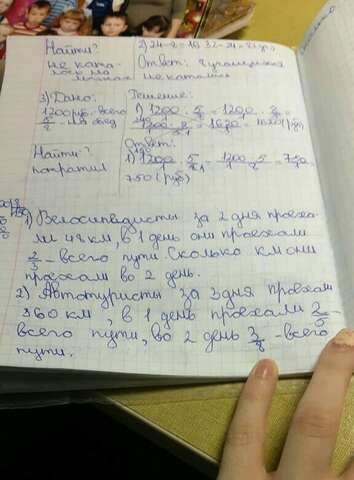 Найти?
не ката-
лось на
лыжах
2) 24-8=16 32-24=8
Ответ: 8
не катались
3) Дано:
1200 руб. - всего
5/8 - на обед
Решение:
1) 1200 : 5/8 = 1200/1 ·
Найти?
потратил
Ответ:
1) 1200/1 · 5/8 = 750/1 =
750 (руб)
1) Велосипедисты за 2 дня проеха-
ли 48 км, в 1 день они проехали
2/3 - всего пути. Сколько км они
проехали во 2 день.
2) Автотуристы за 3 дня проехали
360 км, в 1 день проехали 2/5 -
всего пути, во 2 день 3/8 - всего
пути.